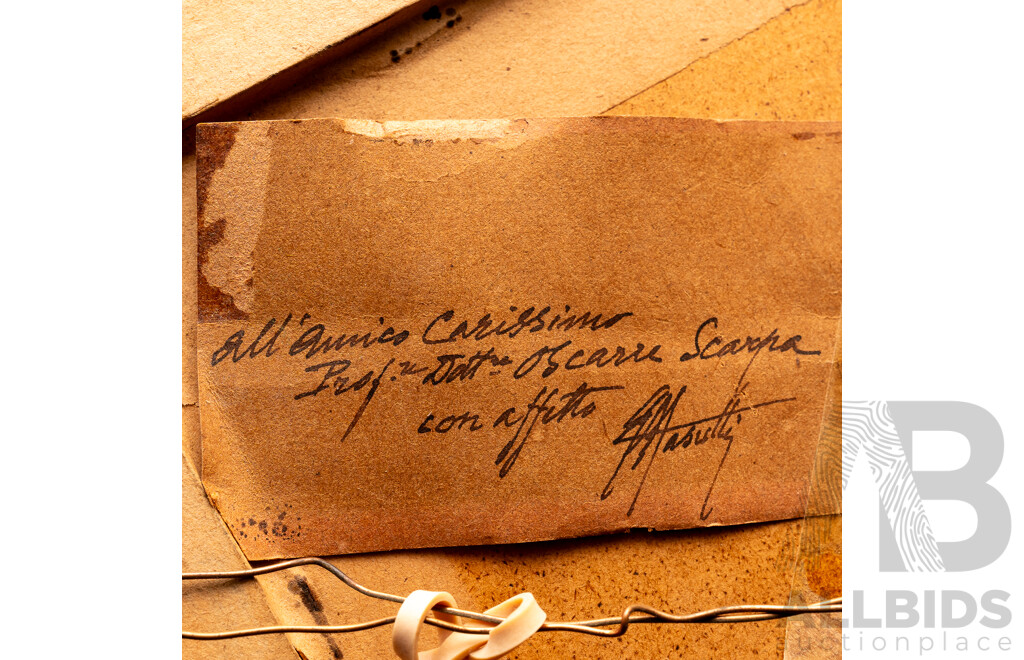 All'Amico Carissimo
Prof.re Dott.re Oscarre Scarpa
con affetto
AB
ALLBIDS
auctionplace